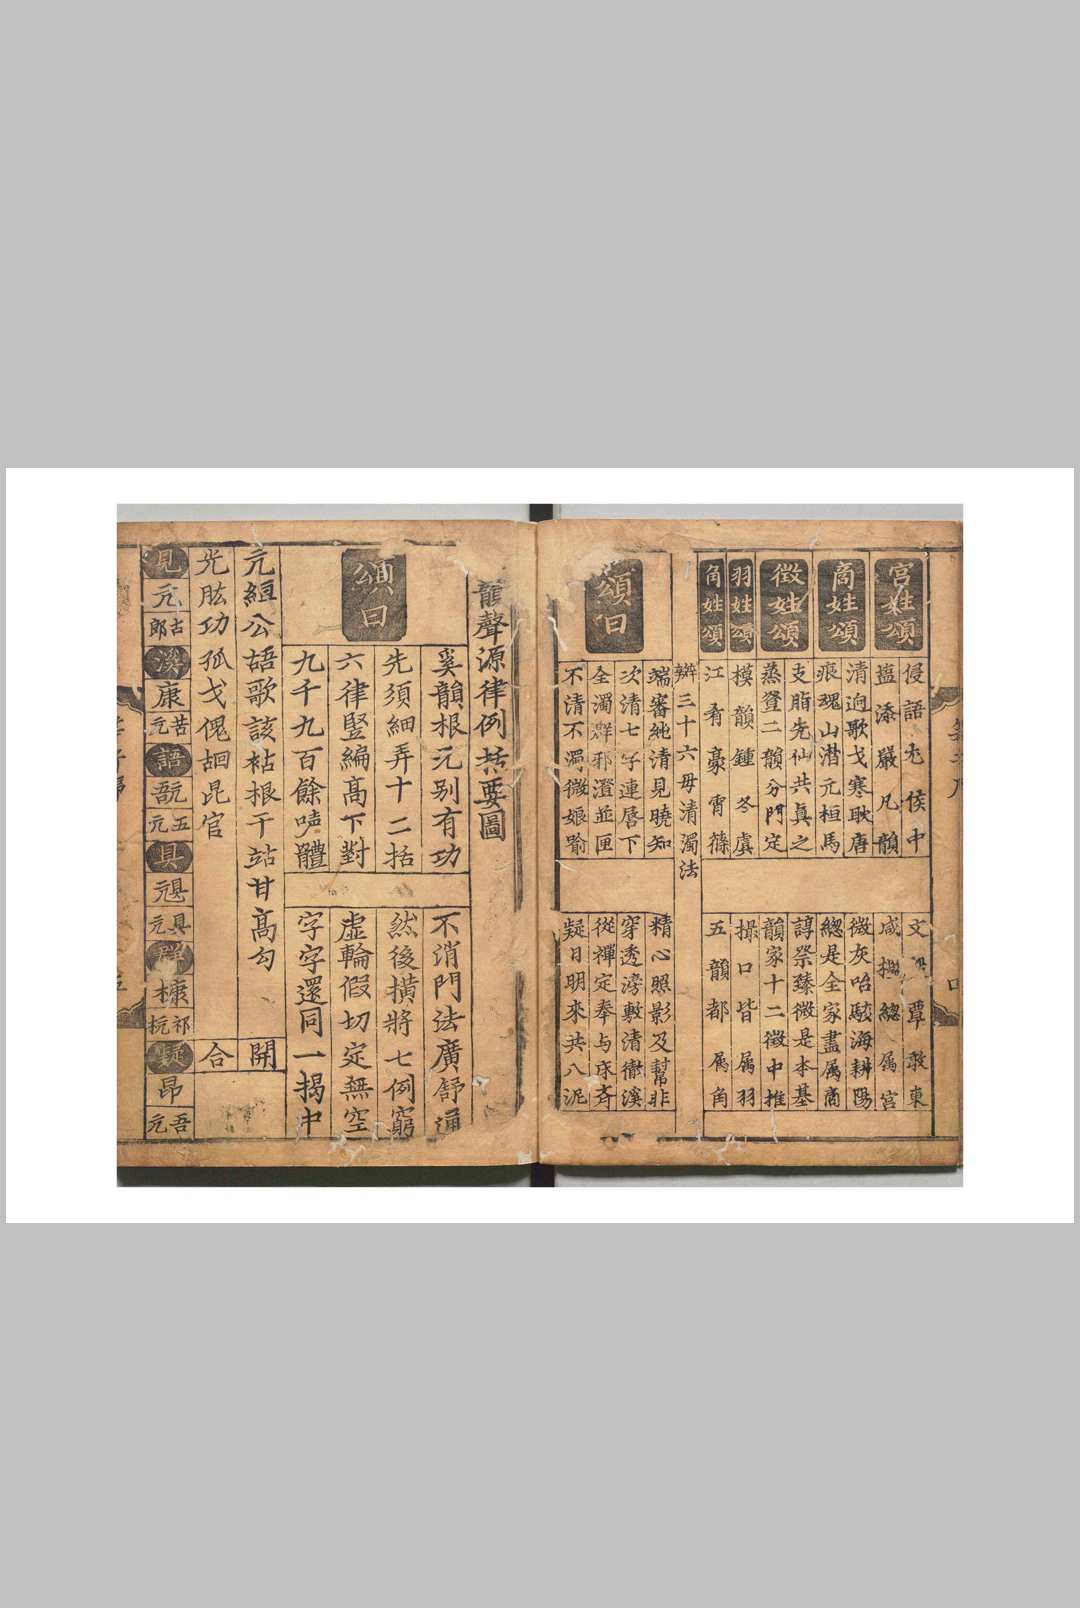 宮姓頌
侵語尤侯中
文
覃敢東
盍添嚴凡韻
咸
總属宮
商姓頌
清迥歌戈寒耿唐
微灰咍駭海耕陽
痕魂山潜元桓馬
總是全家盡属商
徵姓頌
支脂先仙共真之
諄祭臻微是本基
蒸登二韻分門定
韻家十二徵中推
羽姓頌
模韻鍾冬虞
撮口皆属羽
角姓頌
江肴豪宵篠
五韻都属角
辯三十六母清濁法
頌曰
端審純清見曉知
精心照影及幫非
次清七字連唇下
穿透滂敷清徹溪
全濁群邪澄並匣
從禪定奉与床齐
不清不濁微娘喻
疑日明來共八泥
韻聲源律例括要圖
頌曰
奚韻根元别有功
不消門法廣舒通
先須細弄十二括
然後横將七例窮
六律竪編髙下對
虚輪假切定無空
九千九百餘聲體
字字還同一揭中
元絚公䛩歌該祮根干站甘髙勾
開
光肱功孤戈傀䛩昆官
合
見
亢
古郎
溪
康
苦亢
語
䯒
五亢
具
具亢
群
槺
祁杭
疑
昂
吾亢